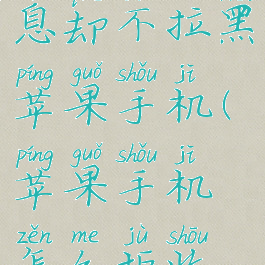 息却不拉黑
píng guǒ shǒu jī
苹果手机(
píng guǒ shǒu jī
苹果手机
zěn me jù shōu
怎么拒收